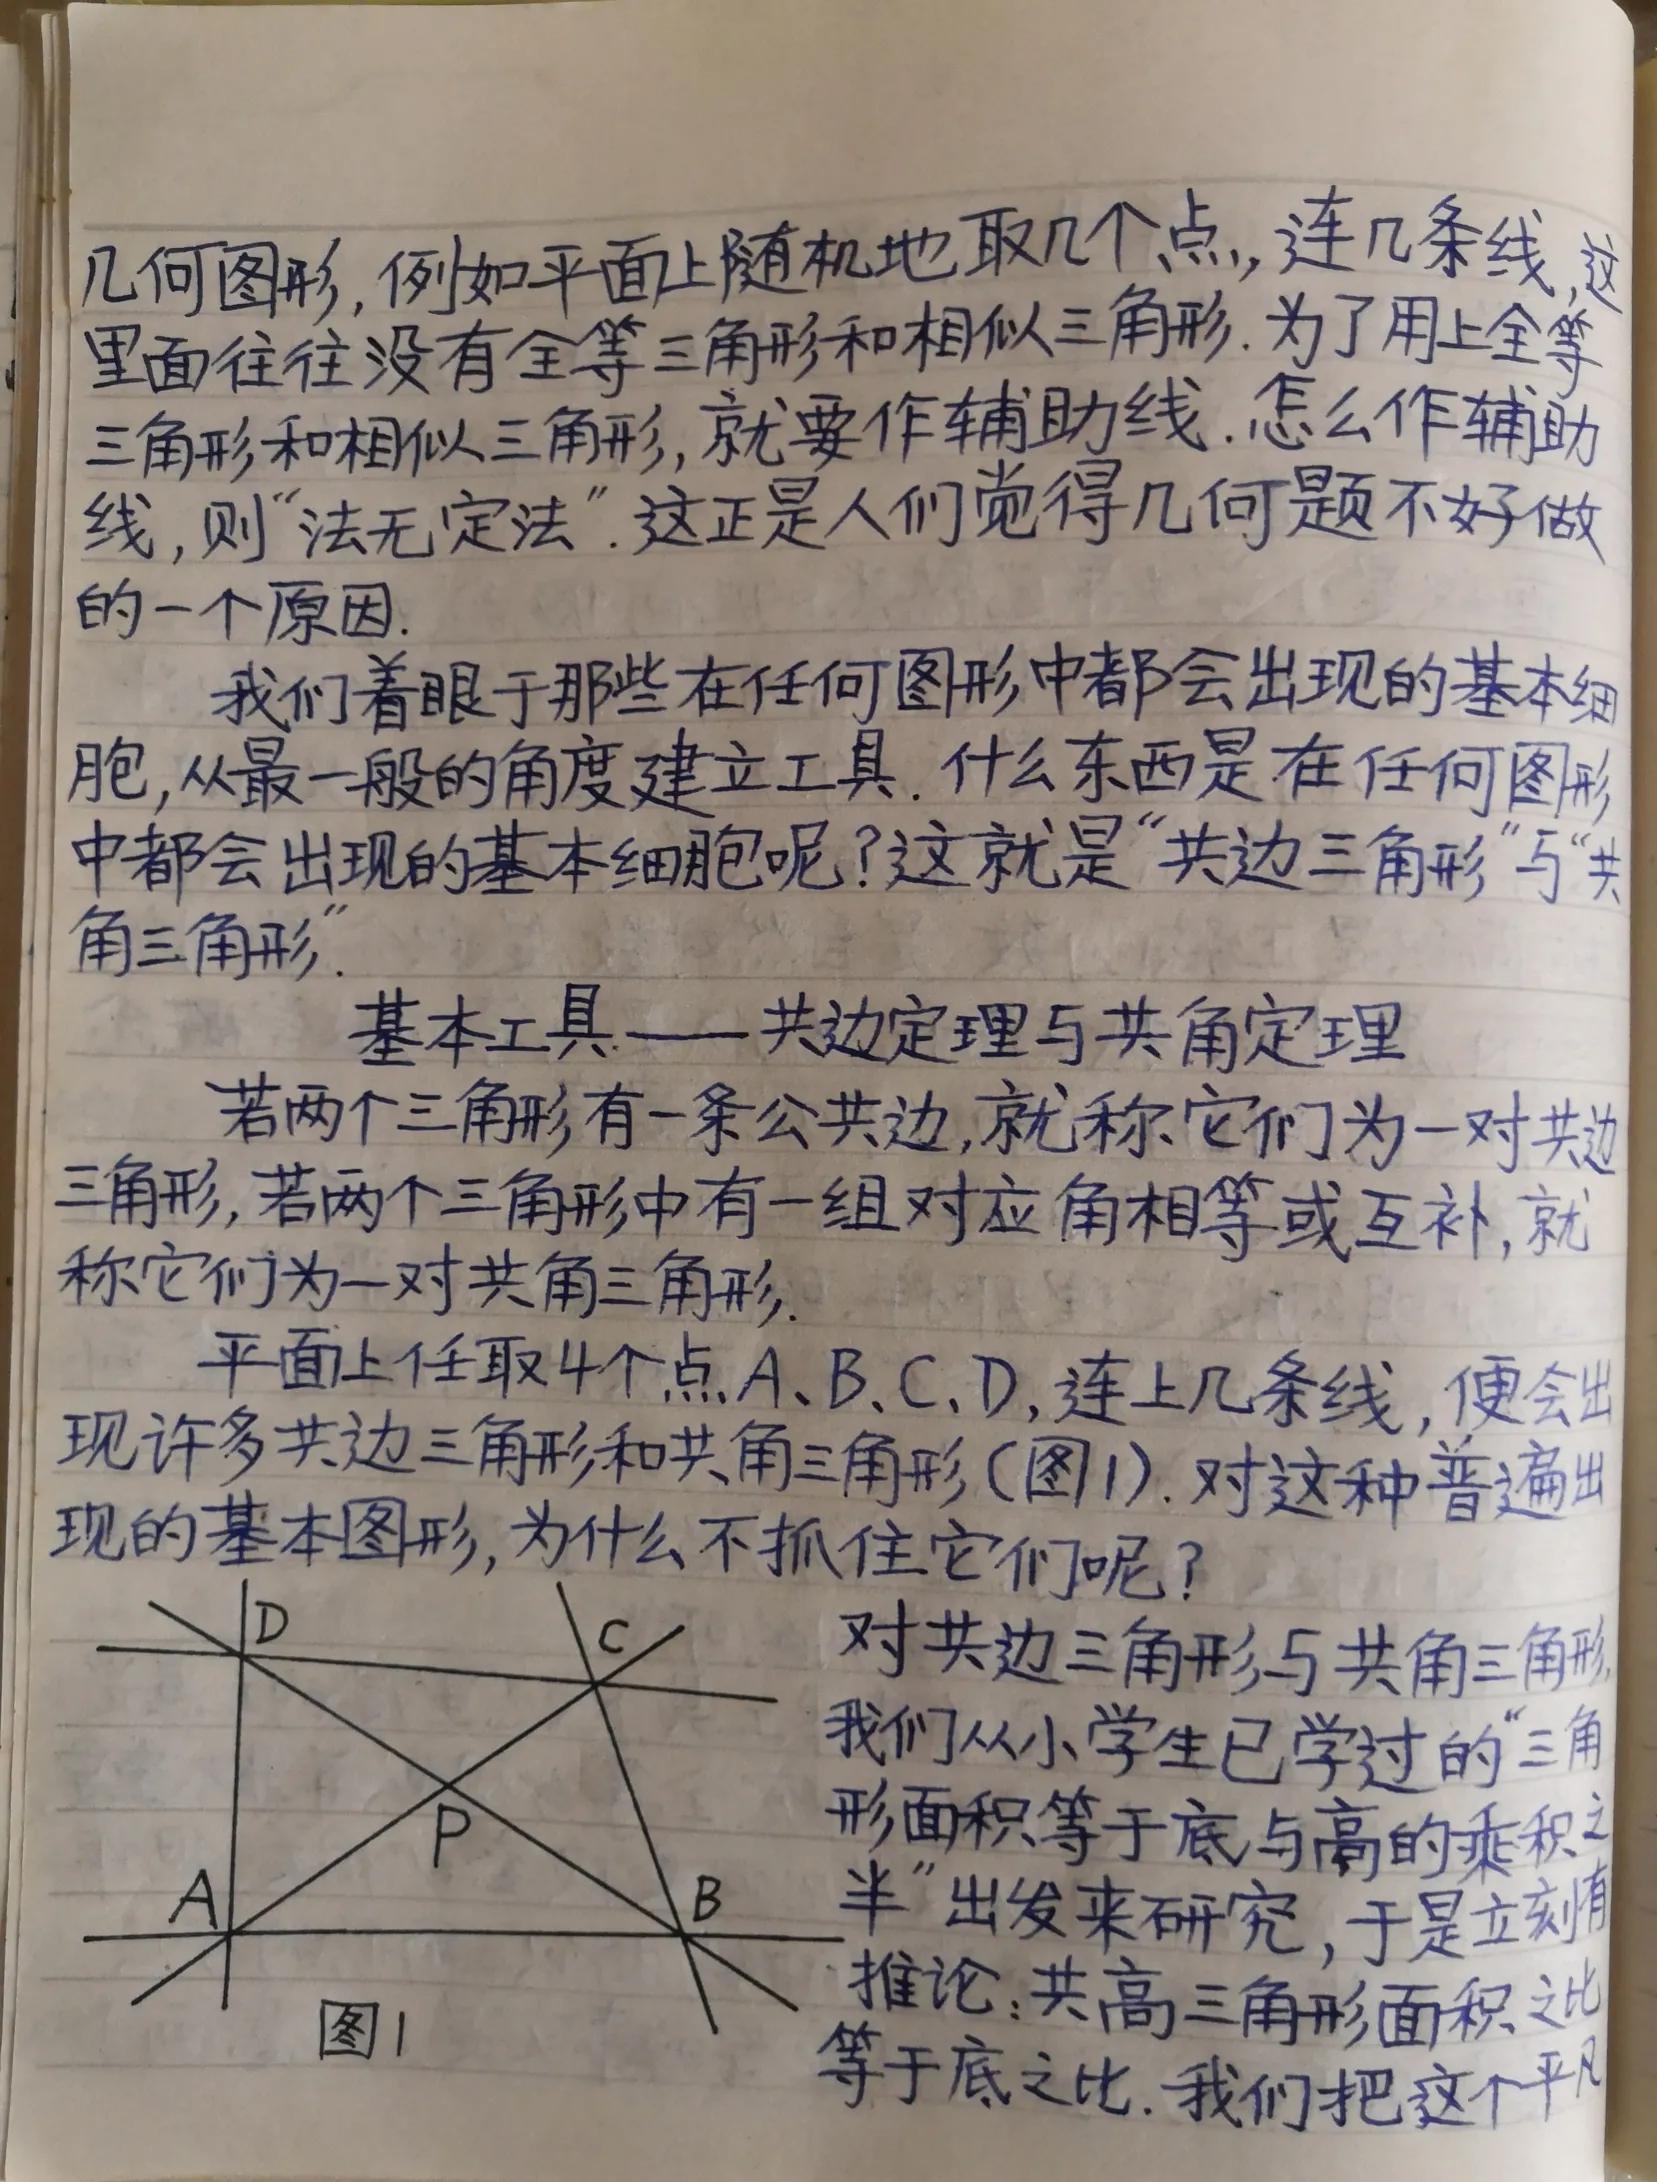 几何图形,例如平面上随机地取几个点,连几条线,这
里面往往没有全等三角形和相似三角形.为了用上全等
三角形和相似三角形,就要作辅助线.怎么作辅助
线,则“法无定法”.这正是人们觉得几何题不好做
的一个原因.
我们着眼于那些在任何图形中都会出现的基本细
胞,从最一般的角度建立工具.什么东西是在任何图形
中都会出现的基本细胞呢?这就是“共边三角形”与“共
角三角形”.
基本工具——共边定理与共角定理
若两个三角形有一条公共边,就称它们为一对共边
三角形,若两个三角形中有一组对应角相等或互补,就
称它们为一对共角三角形.
平面上任取4个点A、B、C、D,连上几条线,便会出
现许多共边三角形和共角三角形(图1).对这种普遍出
现的基本图形,为什么不抓住它们呢?
D
C
P
A
B
图1
对共边三角形与共角三角形,
我们从小学生已学过的“三角
形面积等于底与高的乘积之
半”出发来研究,于是立刻有
推论:共高三角形面积之比
等于底之比.我们把这个平凡